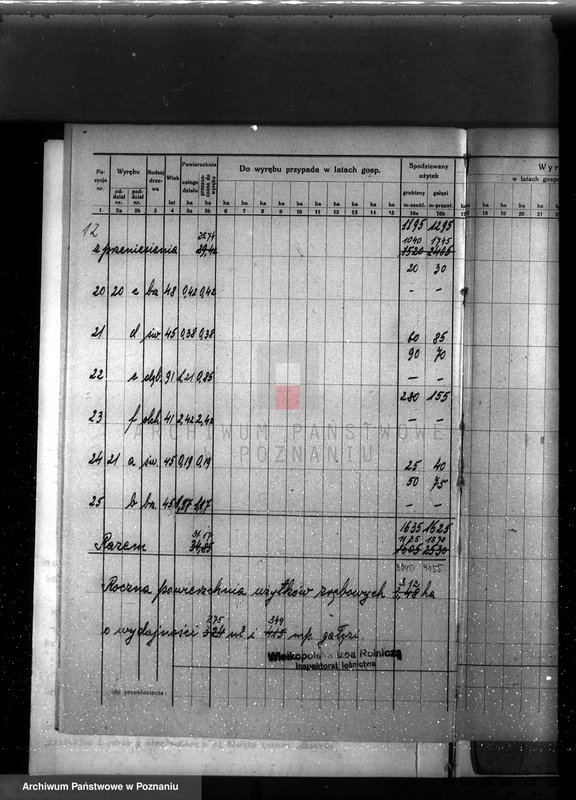 Pozycja nr. Wyrębu Rodzaj drzewa Wiek Powierzchnia Do wyrębu przypada w latach gosp. Spodziewany użytek
oddział nr. poddział nr. lat całego działu przeznaczona do wyrębu grubizny gałęzi
ha ha ha ha ha ha ha ha ha ha ha ha m-sześć. m-przest. ha ha ha ha ha
1 2a 2b 3 4 5a 5b 6 7 8 9 10 11 12 13 14 15 16a 16b 17 18 19 20 21
w latach gosp.
12 1195 1295
1040 1745
z przeniesienia
20 30
20 20 c brz 48 0,42 0,42 - -
21 d św 45 0,38 0,38 60 85
90 70
22 e dąb. 91 1,21 0,85 - -
280 155
23 f olch 41 2,42 2,42 - -
24 21 a św. 45 0,19 0,19 25 40
50 75
25 b brz 45 1,87 1,87 - -
1635 1625
Razem 34,85 1605 2530
Roczna powierzchnia użytków zrębowych 3,48 ha
275 349
o wydajności 324 m³ i 415 mp. gałęzi.
Wielkopolska Izba Rolnicza
Inspektorat leśnictwa
do przeniesienia:
ARCHIWUM PAŃSTWOWE
POZNANIU
Archiwum Państwowe w Poznaniu